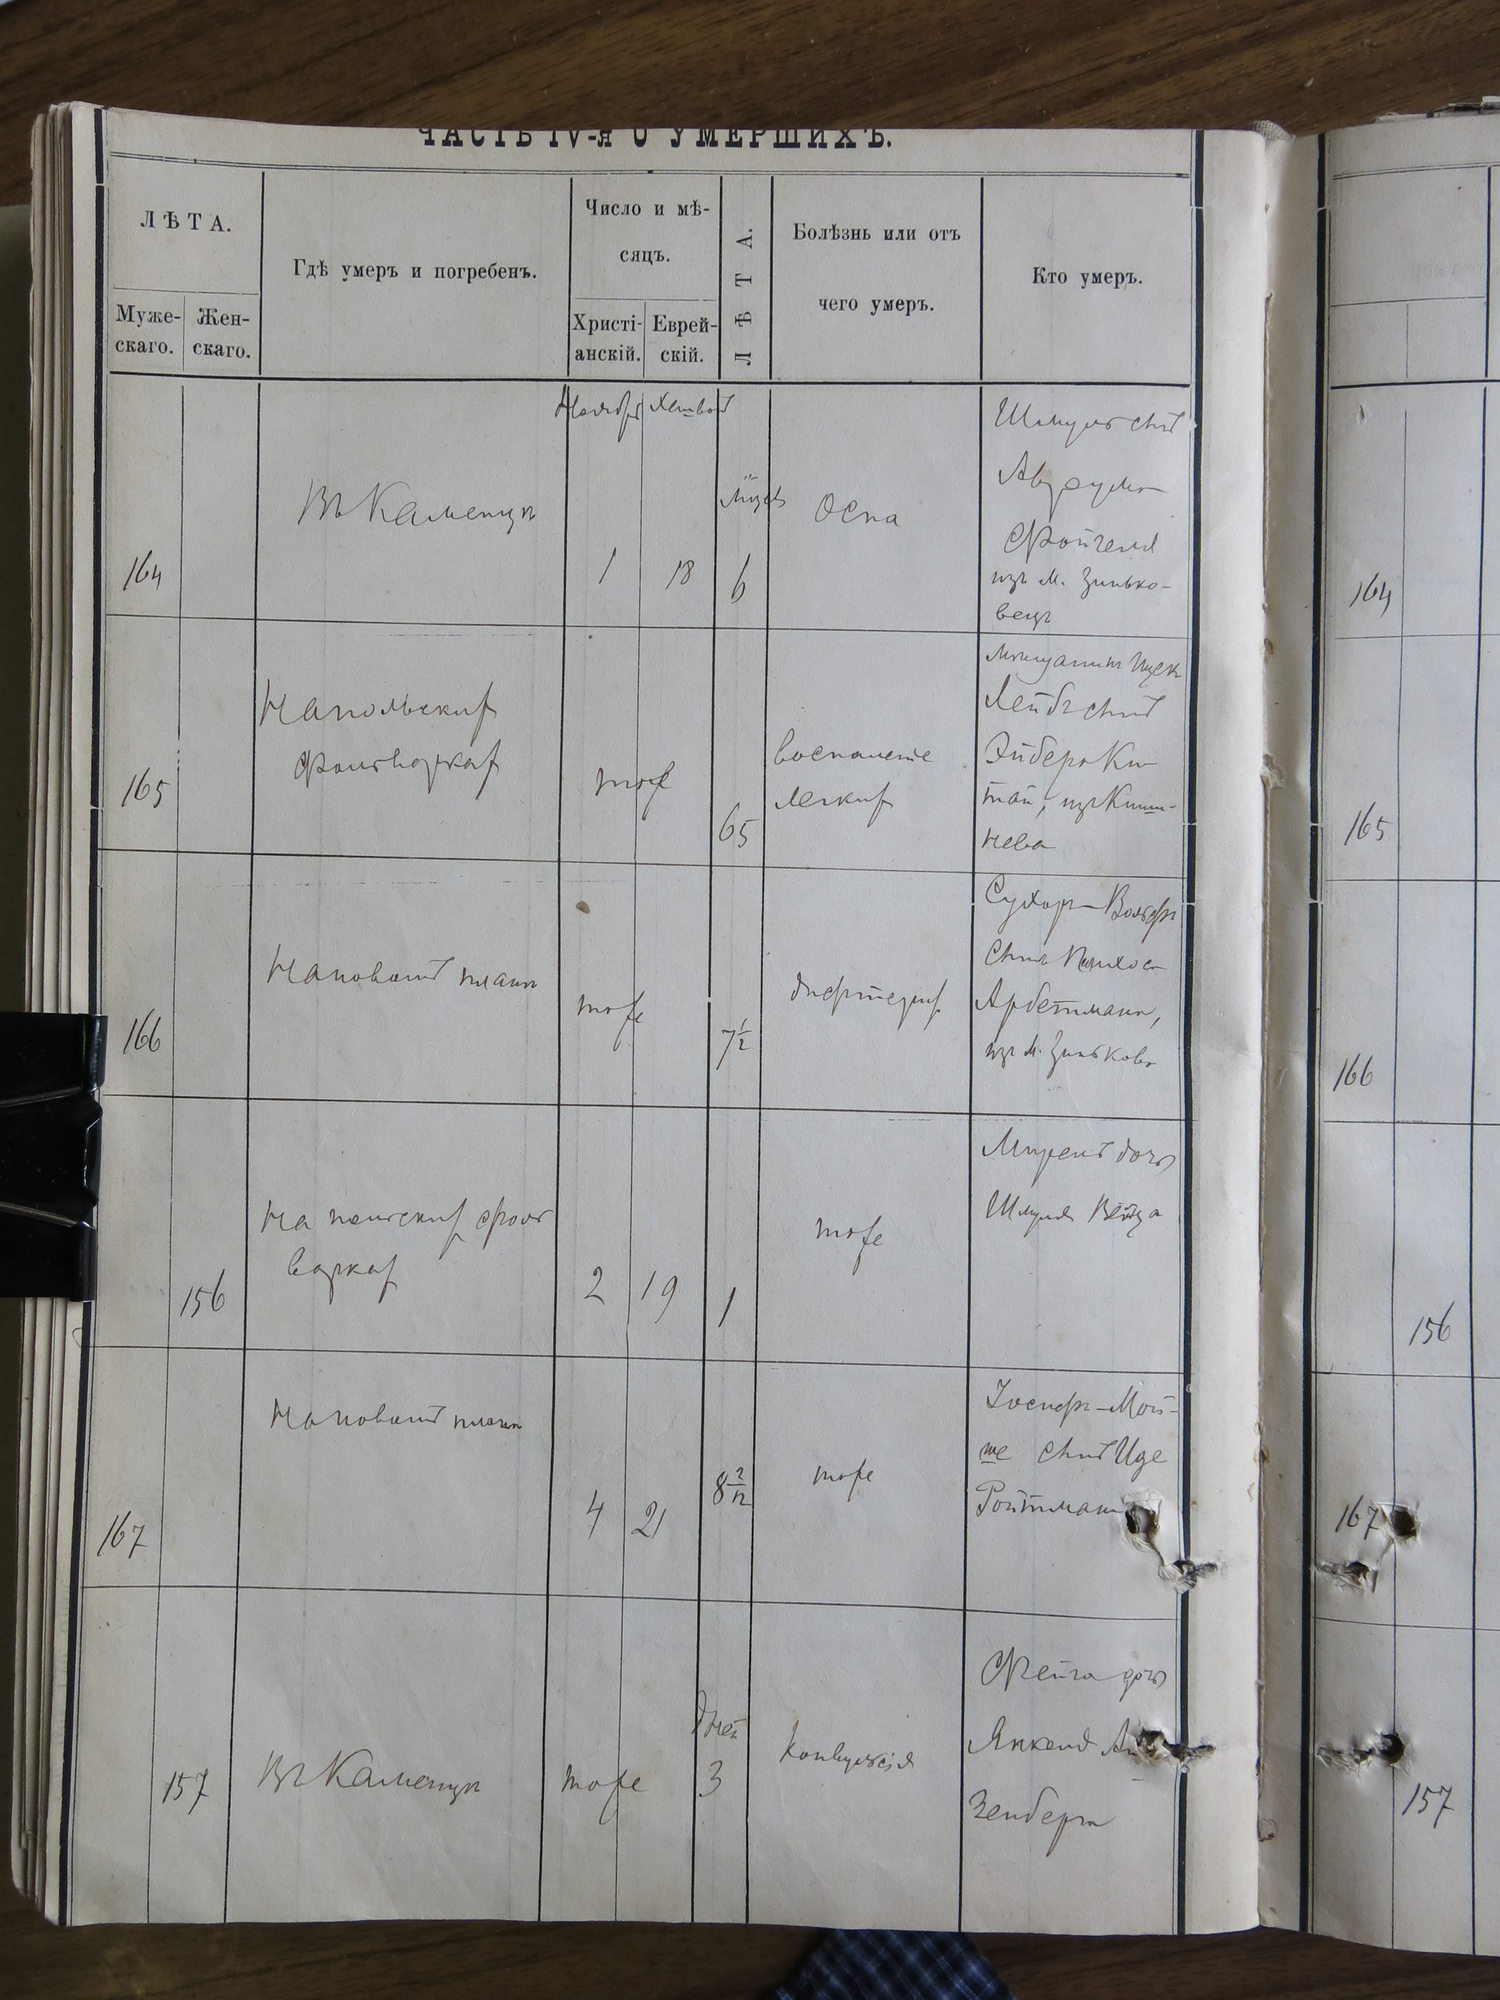 ЧАСТЬ IV-я О УМЕРШИХЪ.
ЛѢТА.
Муже-
скаго.
Жен-
скаго.
Гдѣ умеръ и погребенъ.
Число и мѣ-
сяцъ.
Христі-
анскій.
Еврей-
скій.
ЛѢТА.
Болѣзнь или отъ
чего умеръ.
Кто умеръ.
164
Въ Каменцѣ
Ноябрь
1
18
6
Оспа
Шмуль сынъ
Аврума
Фойгеля
изъ м. Зинько-
вецъ
165
На польских
фольварках
тоже
65
воспаление
легких
мещанинъ Ицек
Лейбъ сынъ
изъ Киши-
нева
166
На новомъ планѣ
тоже
7 1/2
дифтерит
Сухор-Вольф
сынъ Пинхоса
Арбетмана,
изъ м. Зинькова
156
фоль
варках
2
19
1
тоже
дочь
Шмуля Вейца
167
На новомъ планѣ
4
21
8 2/12
тоже
Иосифъ-Мой-
ше сынъ
Ройтмана
157
Въ Каменцѣ
тоже
дней
3
конвульсія
Фейга дочь
Янкеля
зенберга
164
165
166
156
167
157